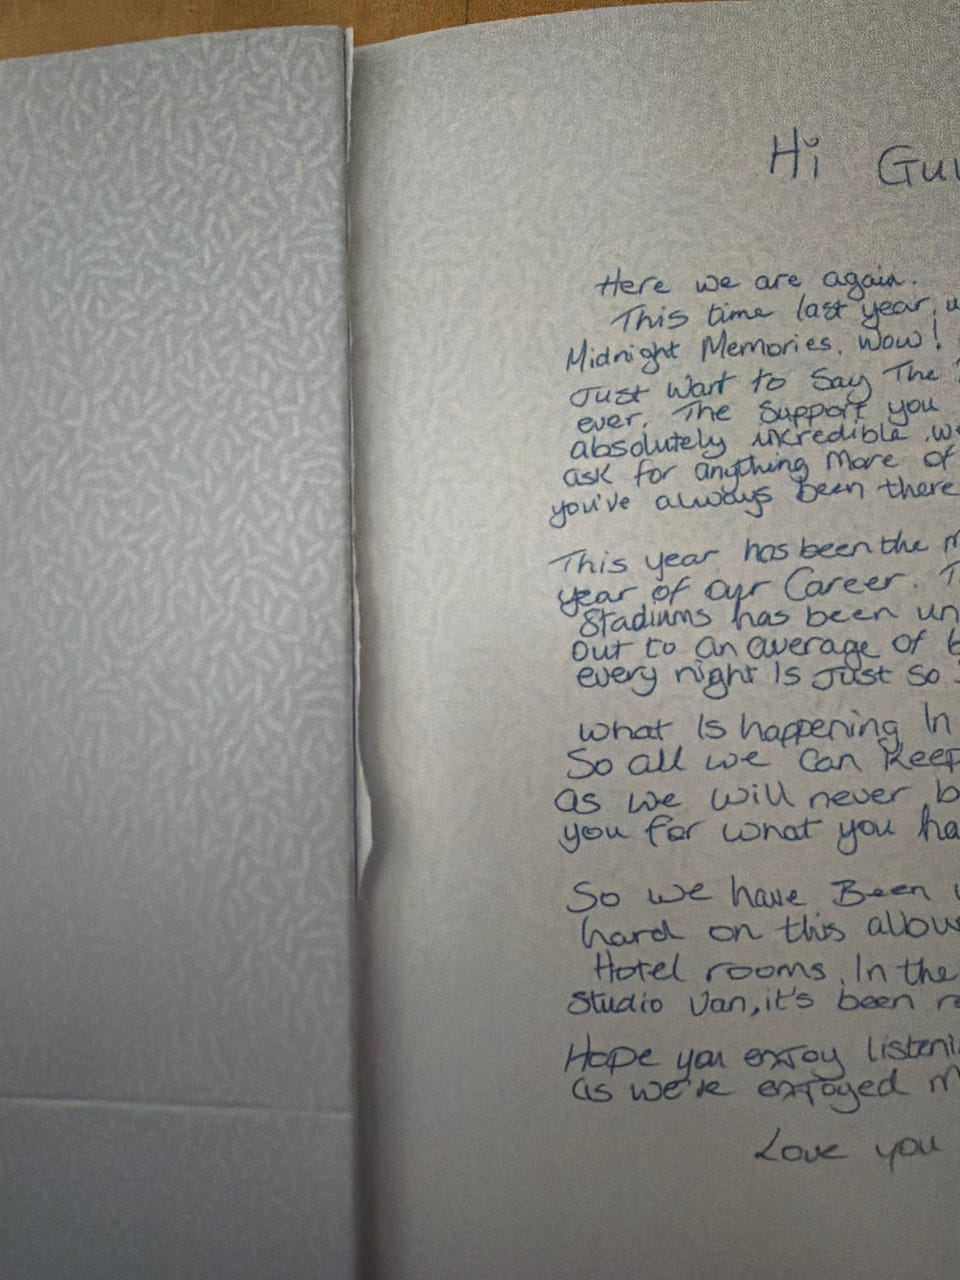 Hi
Here we are again.
This time last year,
Midnight Memories. Wow!
Just want to Say The
ever. The Support you
absolutely incredible. we
ask for anything More of
you've always been there
This year has been the
year of our Career.
Stadiums has been
out to an average of
every night Is Just so
what Is happening In
So all we can Keep
as we will never
you for what you
So we have Been
hard on this
Hotel rooms, In the
Studio Van, it's been
Hope you enjoy
as we've enjoyed
Love you